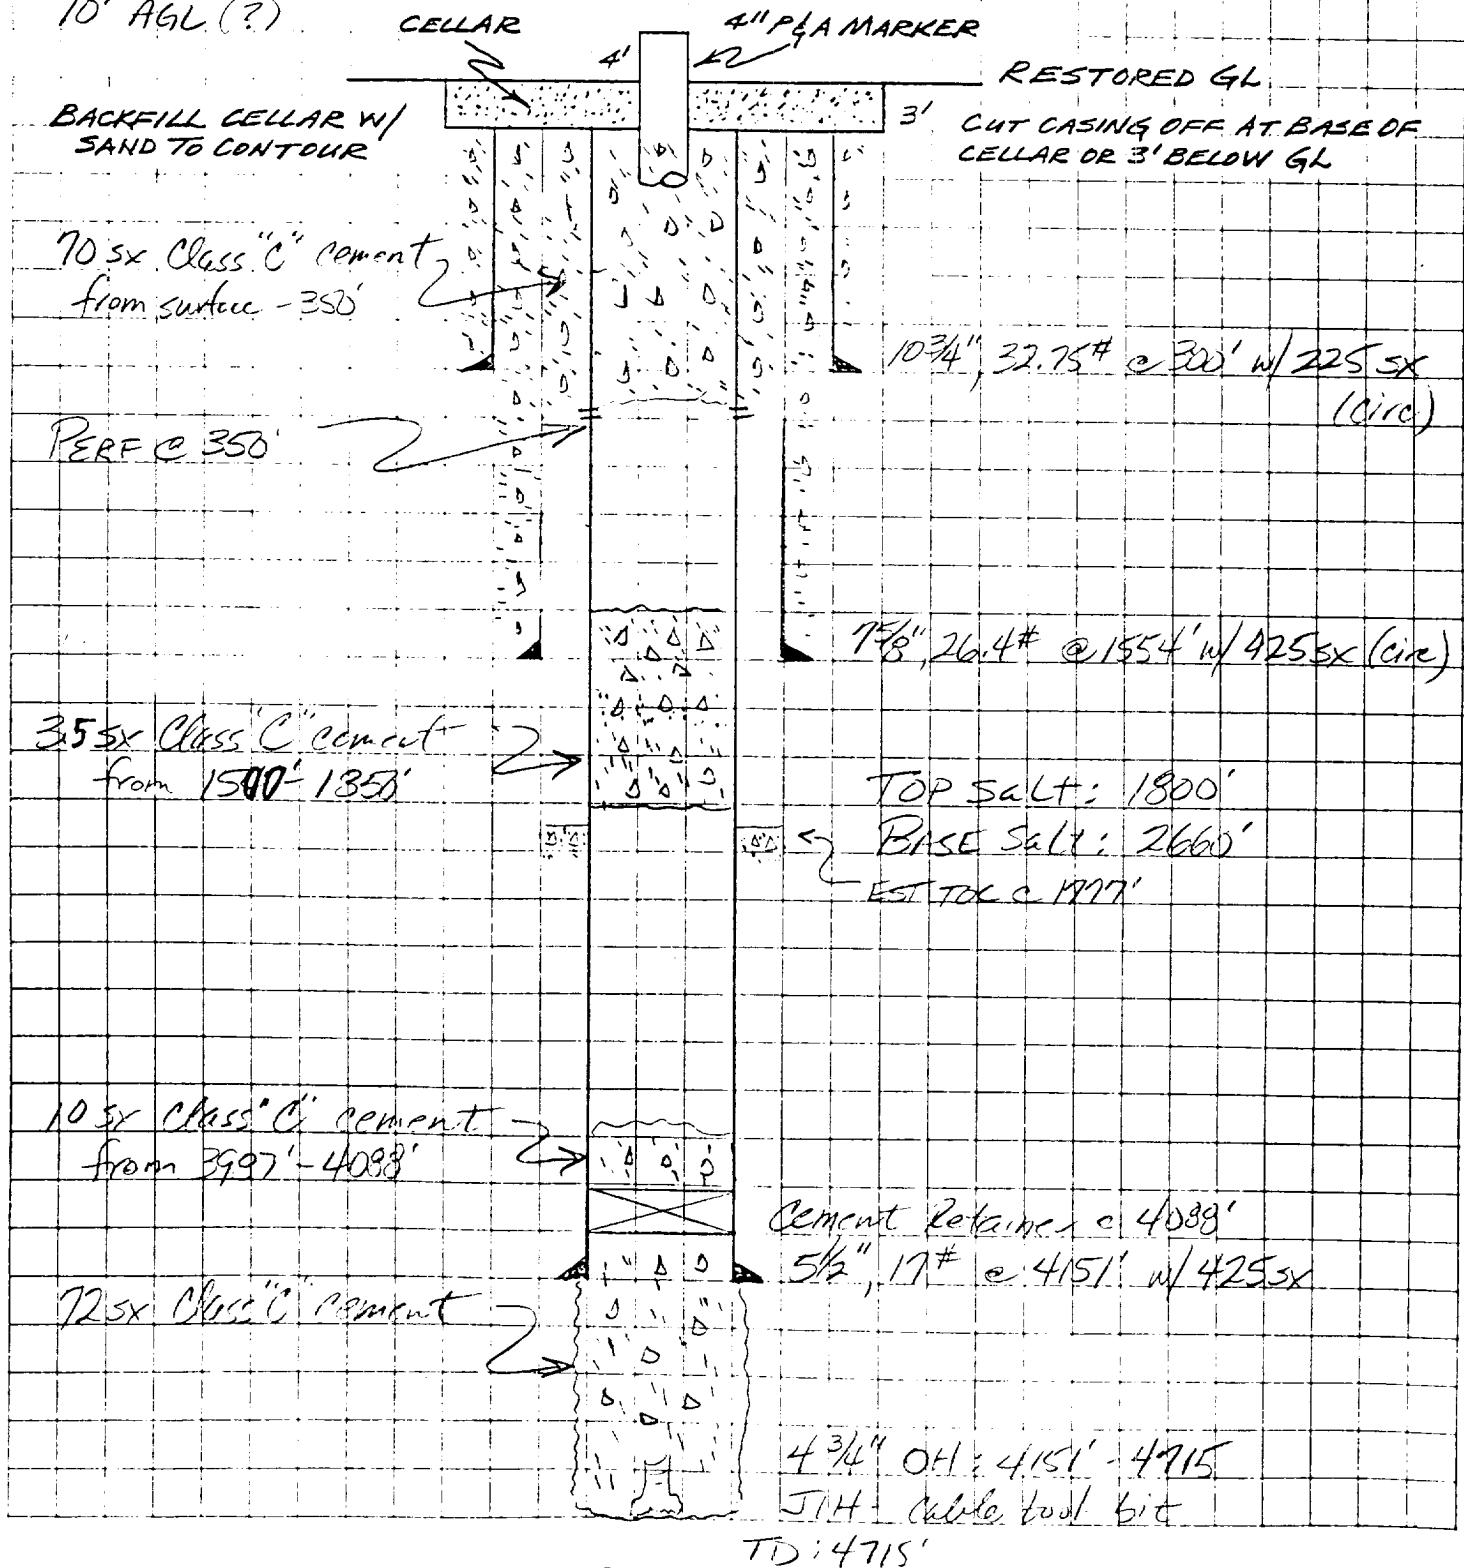 10' AGL (?)
CELLAR
4" P&A MARKER
4'
RESTORED GL
BACKFILL CELLAR W/
SAND TO CONTOUR
3'
CUT CASING OFF AT BASE OF
CELLAR OR 3' BELOW GL
70 sx Class "C" cement
from surface - 350'
10 3/4", 32.75# @ 300' w/ 225 sx
(circ)
PERF @ 350'
7 5/8", 26.4# @ 1554' w/ 425 sx (circ)
35 sx Class "C" cement
from 1500'- 1350'
TOP Salt: 1800'
BASE Salt: 2660'
EST TOC @ 1777'
10 sx Class "C" cement
from 3997'- 4088'
Cement Retainer @ 4088'
5 1/2", 17# @ 4151' w/ 425 sx
72 sx Class "C" cement
4 3/4" OH: 4151' - 4715
JIH - Cable tool bit
TD: 4715'